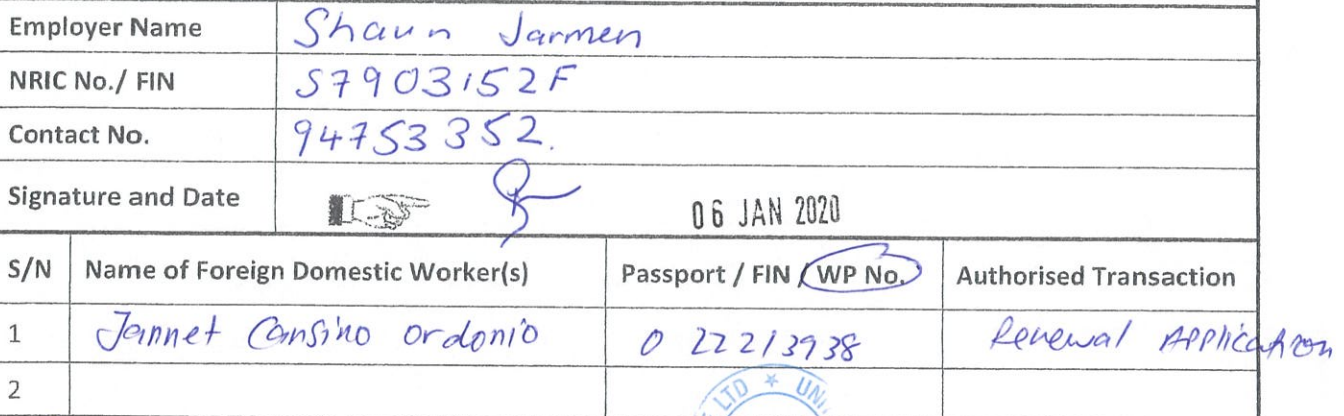 Employer Name Shaun Jarmen
NRIC No./ FIN S7903152F
Contact No. 94753352.
Signature and Date 06 JAN 2020
S/N Name of Foreign Domestic Worker(s) Passport / FIN / WP No. Authorised Transaction
1 Jannet Cansino Ordonio 0 22213938 Renewal Application
2
LTD * UN